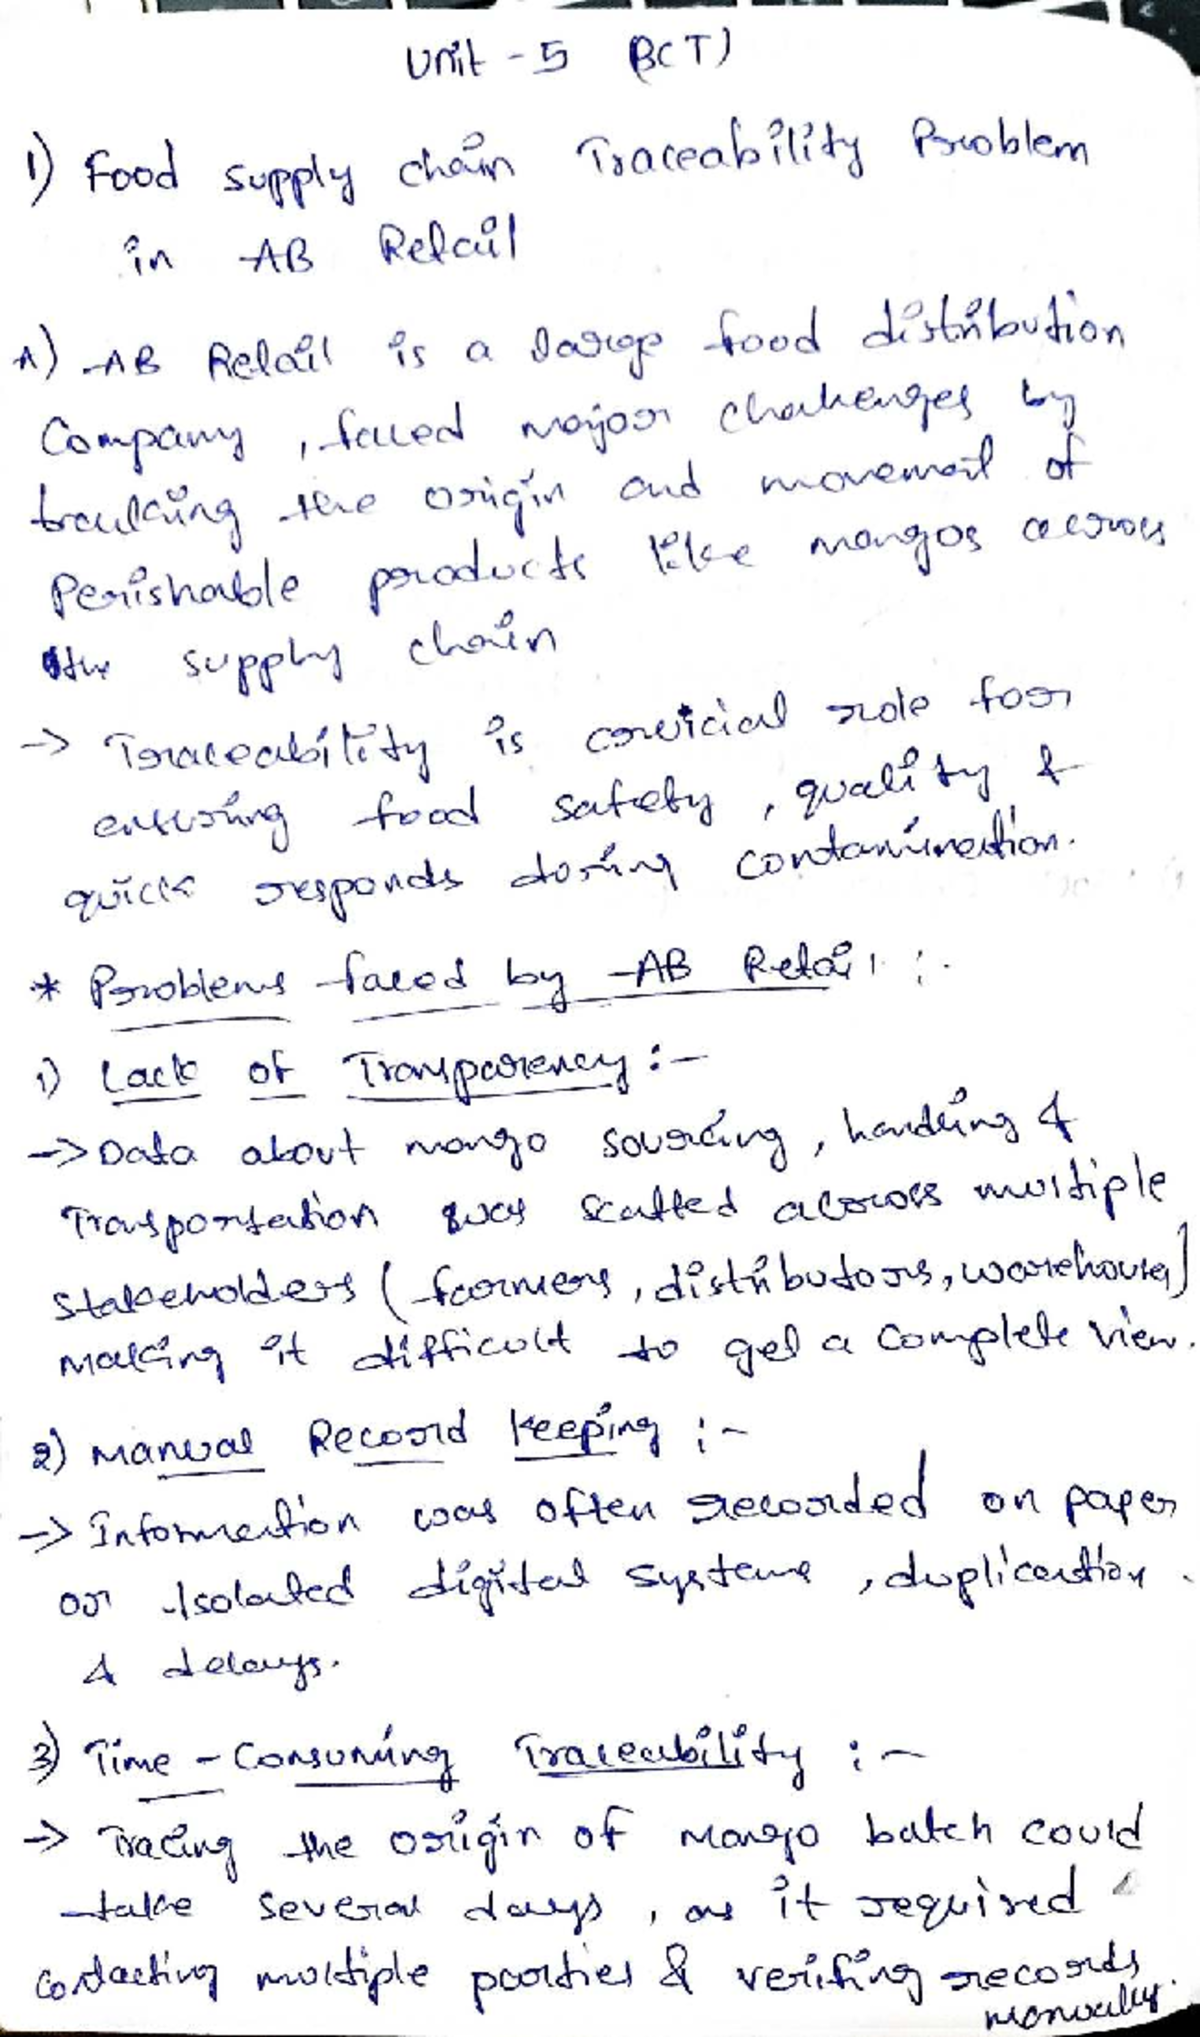 Unit - 5 (BCT)
1) Food supply chain Traceability Problem
in AB Retail
A) AB Retail is a large food distribution
Company, faced major challenges by
tracking the origin and movement of
Perishable products like mangos across
the supply chain
-> Traceability is crucial role for
ensuring food safety, quality &
quick responds during contamination.
* Problems faced by AB Retail :-
1) Lack of Transparency :-
-> Data about mango sourcing, handling &
Transportation was scatted across multiple
stakeholders (farmers, distributors, warehouses)
making it difficult to get a complete view.
2) Manual Record Keeping :-
-> Information was often recorded on paper
or isolated digital systems, duplication
& delays.
3) Time - Consuming Traceability :-
-> Tracing the origin of mango batch could
take several days, as it required
contacting multiple parties & verifing records
manually.